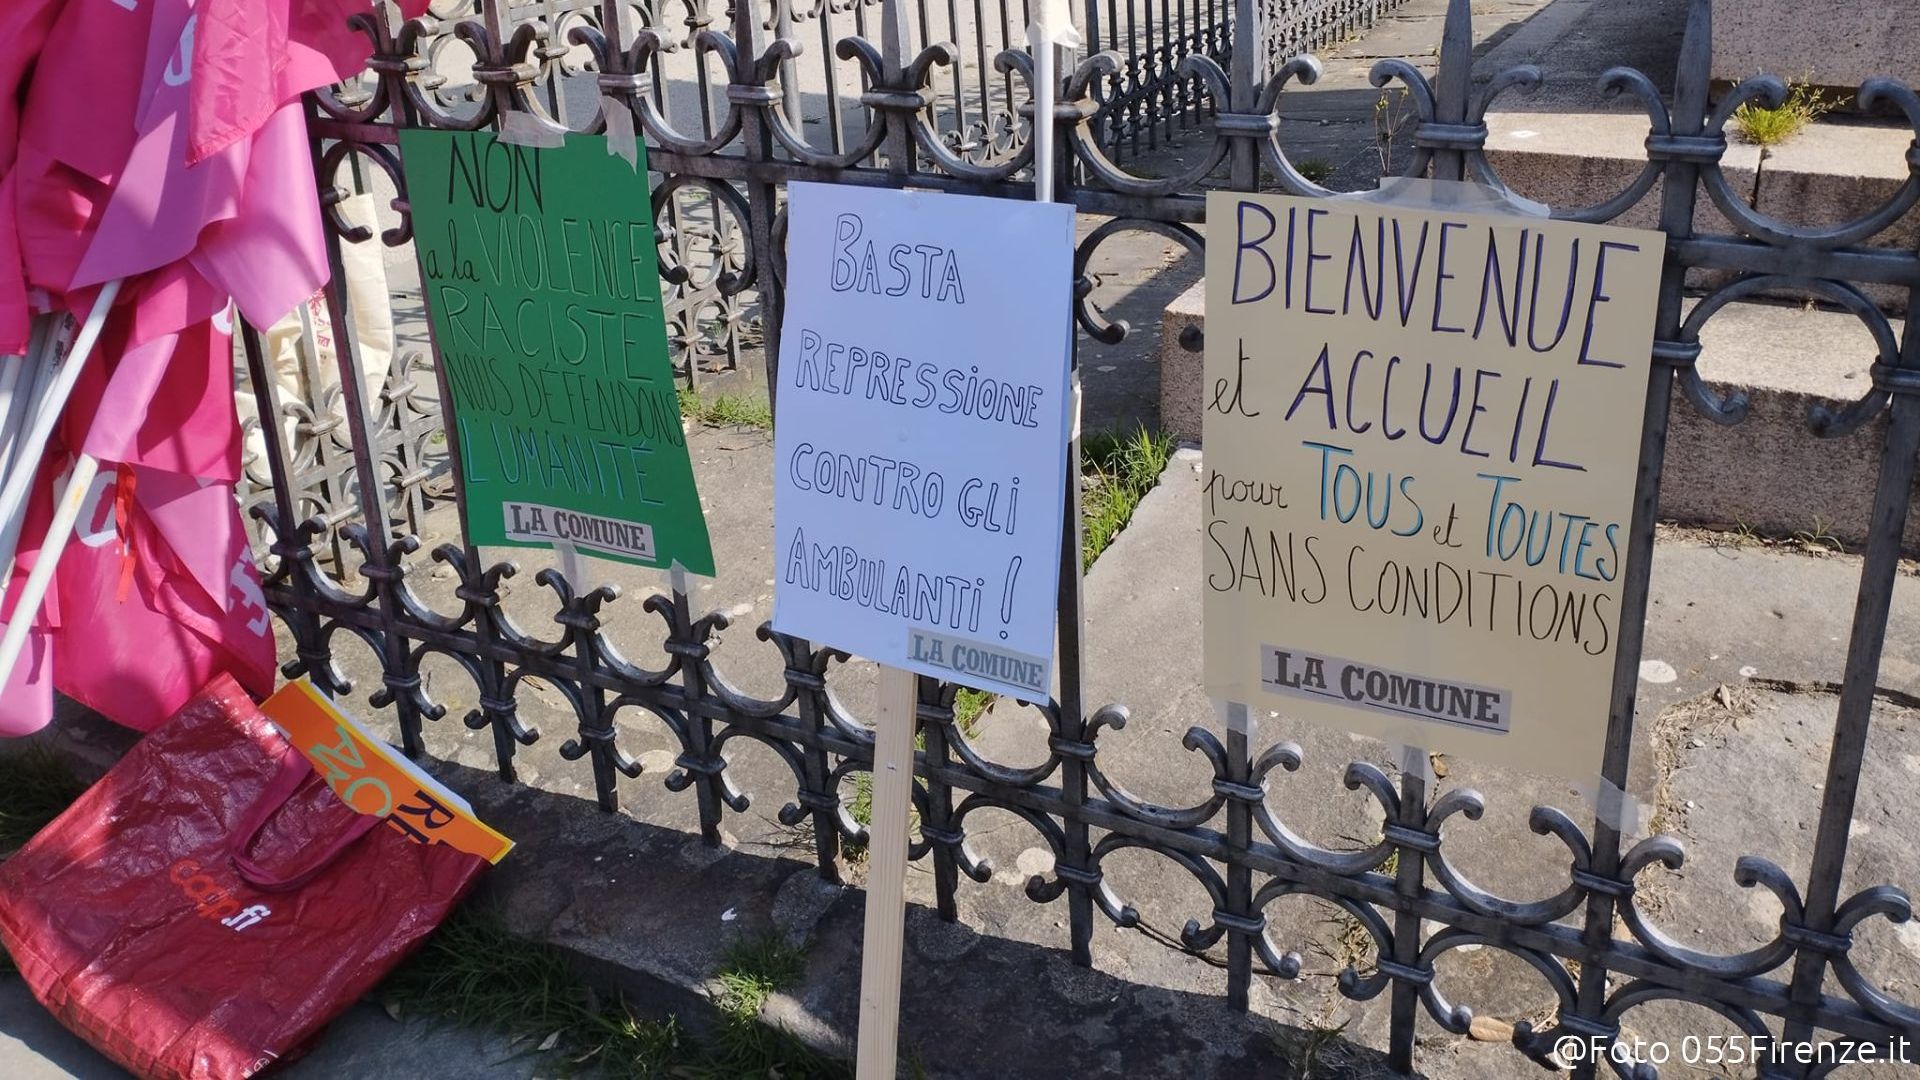 NON
a la VIOLENCE
RACISTE
NOUS DÉFENDONS
L'UMANITÉ
LA COMUNE
BASTA
REPRESSIONE
CONTRO GLI
AMBULANTI!
LA COMUNE
BIENVENUE
et ACCUEIL
pour TOUS et TOUTES
SANS CONDITIONS
LA COMUNE
coop.fi
@Foto 055Firenze.it